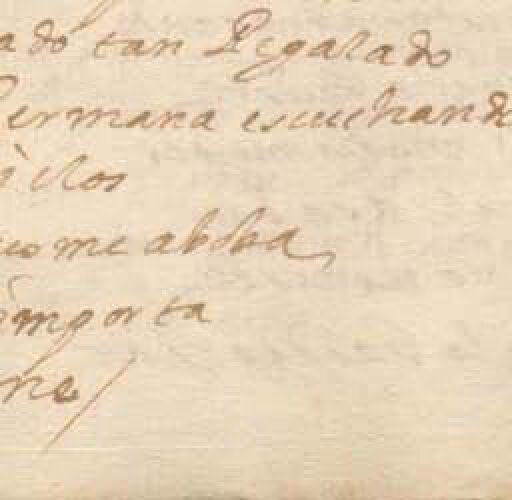 ado tan Regalado
hermana escuchando
ellos
me abbla,
importa
ne/